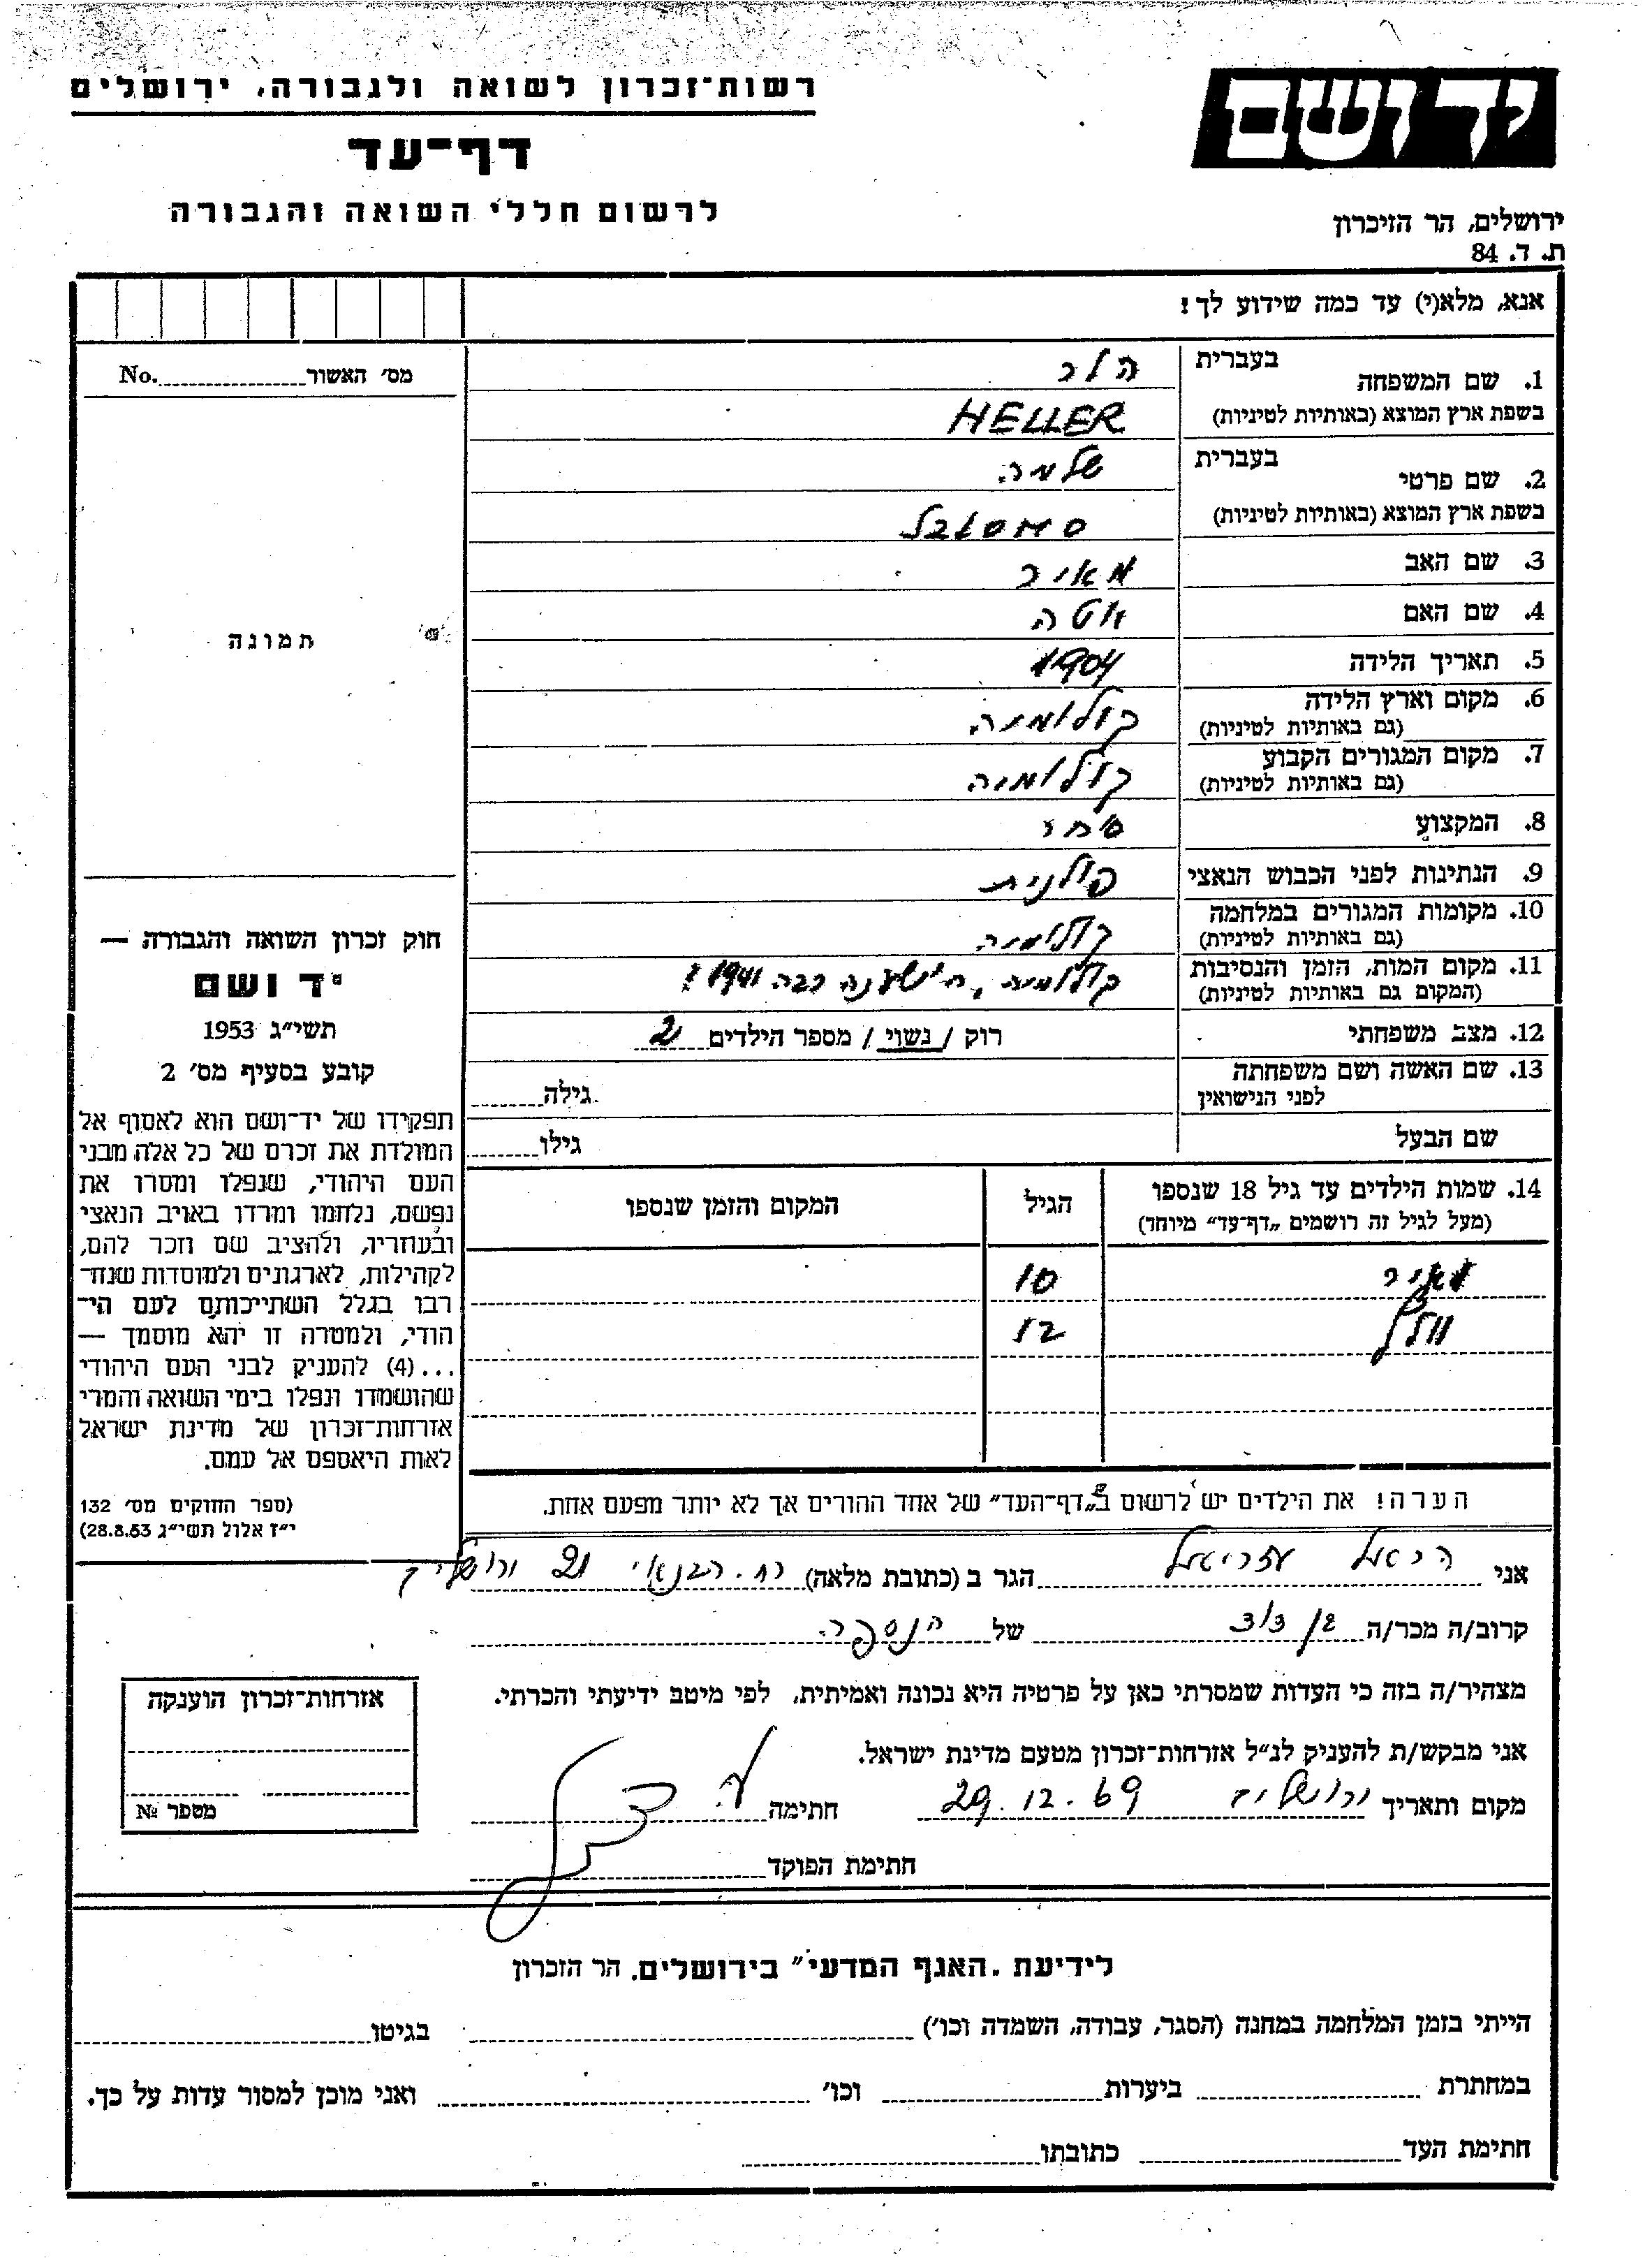 רשות־זכרון לשואה ולגבורה, ירושלים
דף־עד
לרשום חללי השואה והגבורה
יד ושם
ירושלים, הר הזיכרון
ת. ד. 84
אנא, מלא(י) עד כמה שידוע לך!
1. שם המשפחה בעברית הלר
בשפת ארץ המוצא (באותיות לטיניות) HELLER
2. שם פרטי בעברית שלמה
בשפת ארץ המוצא (באותיות לטיניות)
3. שם האב מאיר
4. שם האם אטה
5. תאריך הלידה 1904
6. מקום וארץ הלידה
(גם באותיות לטיניות) קולומיה
7. מקום המגורים הקבוע
(גם באותיות לטיניות) קולומיה
8. המקצוע סחר
9. הנתינות לפני הכבוש הנאצי פולנית
10. מקומות המגורים במלחמה
(גם באותיות לטיניות) קולומיה
11. מקום המות, הזמן והנסיבות
(המקום גם באותיות לטיניות) קולומיה, הושענה רבה 1941!
12. מצב משפחתי רוק / נשוי / מספר הילדים 2
13. שם האשה ושם משפחתה
לפני הנישואין גילה
שם הבעל גילו
14. שמות הילדים עד גיל 18 שנספו
(מעל לגיל זה רושמים „דף־עד״ מיוחד)
הגיל
המקום והזמן שנספו
10
12
הערה! את הילדים יש לרשום ב„דף־העד״ של אחד ההורים אך לא יותר מפעם אחת.
מס׳ האשור No.
תמונה
חוק זכרון השואה והגבורה —
יד ושם
תשי״ג 1953
קובע בסעיף מס׳ 2
תפקידו של יד־ושם הוא לאסוף אל
המולדת את זכרם של כל אלה מבני
העם היהודי, שנפלו ומסרו את
נפשם, נלחמו ומרדו באויב הנאצי
ובעוזריו, ולהציב שם וזכר להם,
לקהילות, לארגונים ולמוסדות שנח־
רבו בגלל השתייכותם לעם הי־
הודי, ולמטרה זו יהא מוסמך —
...(4) להעניק לבני העם היהודי
שהושמדו ונפלו בימי השואה והמרי
אזרחות־זכרון של מדינת ישראל
לאות היאספם אל עמם.
(ספר החוקים מס׳ 132
י״ז אלול תשי״ג 28.8.53)
אני הראל עזריאל הגר ב (כתובת מלאה) רח. הבנאי 21 ירושלים
קרוב/ה מכר/ה בן דוד של הנספה
מצהיר/ה בזה כי העדות שמסרתי כאן על פרטיה היא נכונה ואמיתית, לפי מיטב ידיעתי והכרתי.
אני מבקש/ת להעניק לנ״ל אזרחות־זכרון מטעם מדינת ישראל.
מקום ותאריך ירושלים 29.12.69 חתימה
חתימת הפוקד
אזרחות־זכרון הוענקה
מספר №
לידיעת „האגף המדעי״ בירושלים, הר הזכרון
הייתי בזמן המלחמה במחנה (הסגר, עבודה, השמדה וכו׳) בגיטו
במחתרת ביערות וכו׳ ואני מוכן למסור עדות על כך.
חתימת העד כתובתו